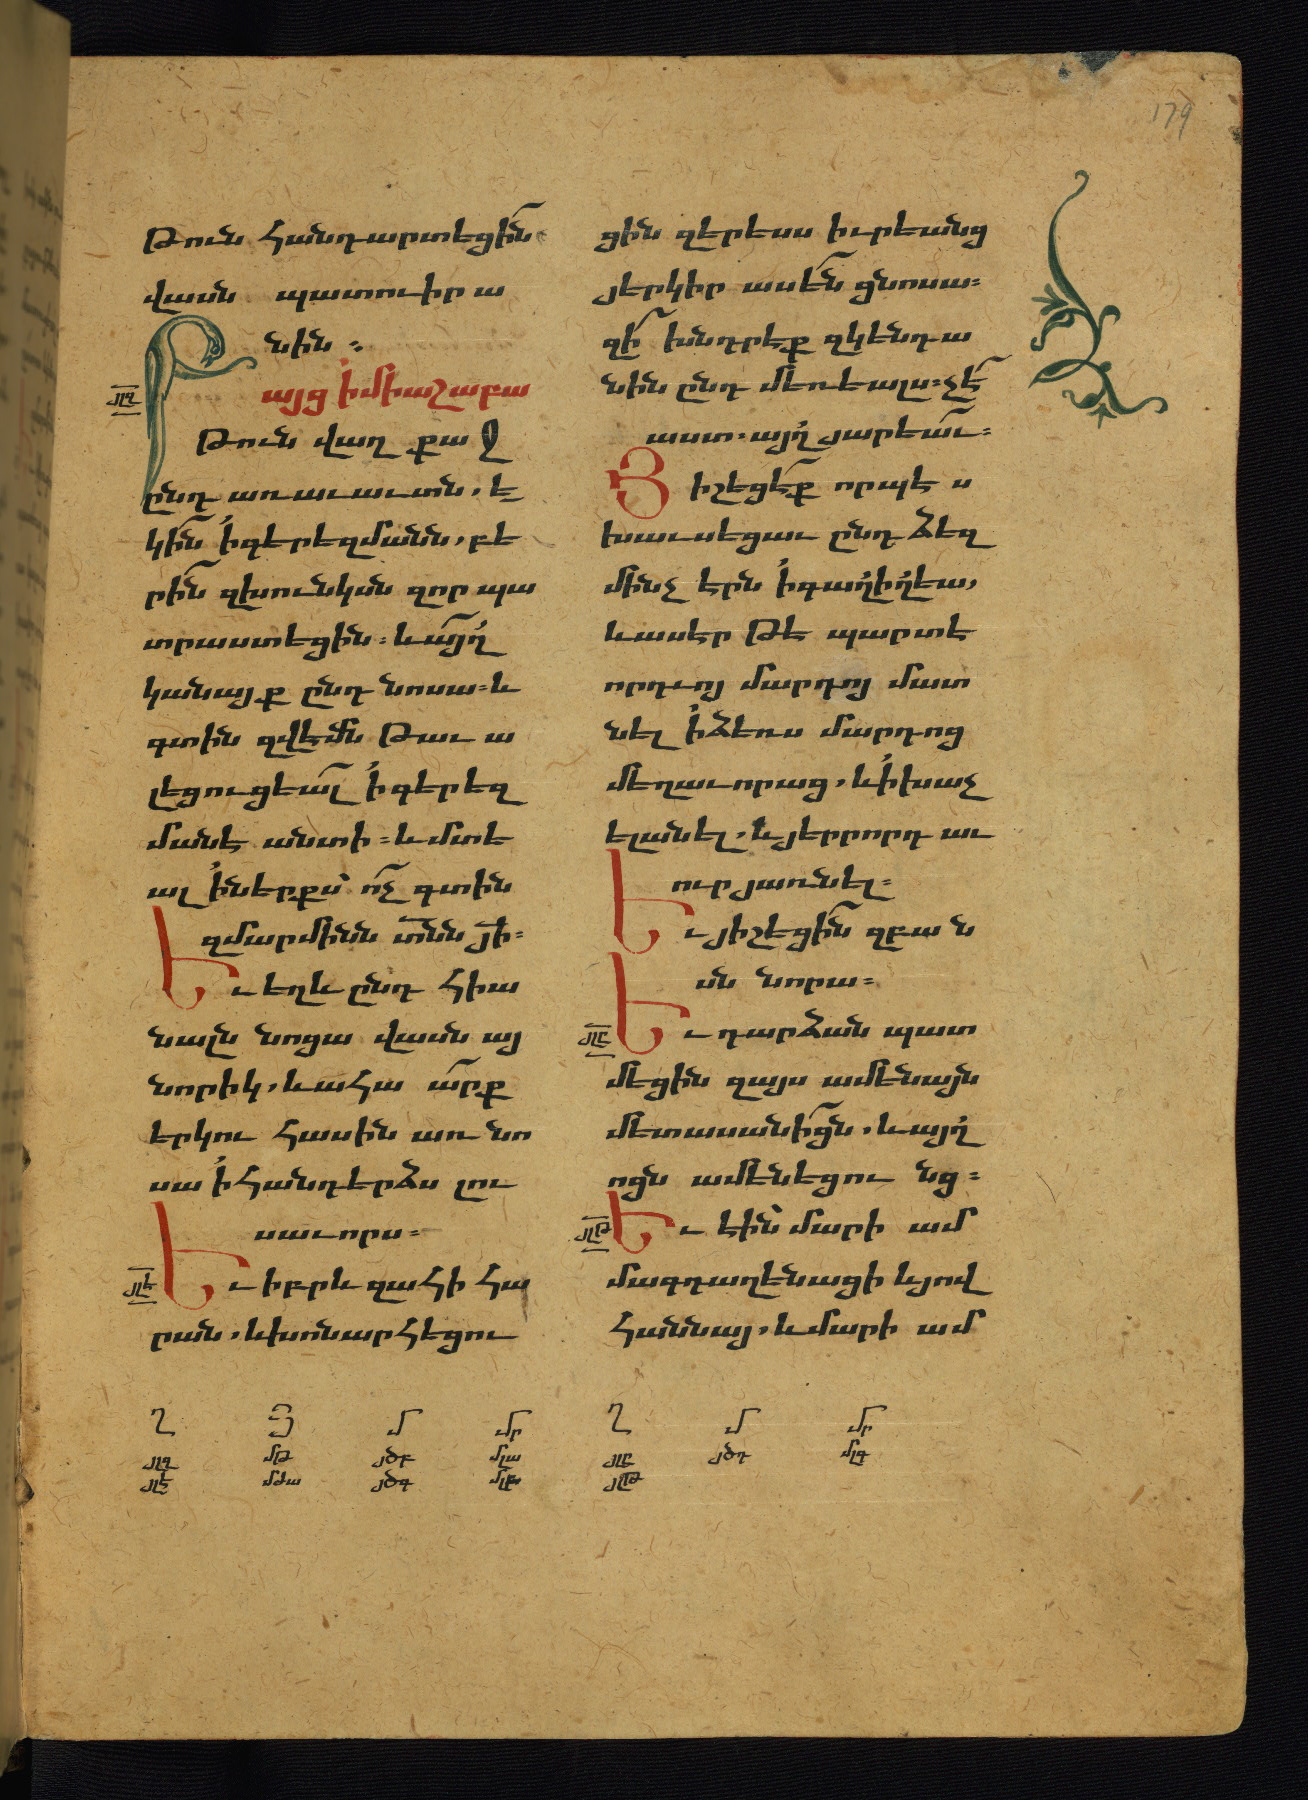 179
թուն հանդարտեցին
վասն պատուիրա
նին։
այց իմիաշաբա
յլզ
թուն վաղ քաջ
ընդ առաւաւտն, ե
կին իգերեզմանն, բե
րին զխունկսն զոր պա
տրաստեցին։ և այղ
կանայք ընդ նոսա։ և
գտին զվէմն թաւա
լեցուցեալ իգերեզ
մանէ անտի։ և մտե
ալ իներքս ոչ գտին
զմարմինն տնն յի։
Եւ եղև ընդ հիա
նալն նոցա վասն այ
նորիկ, և ահա արք
երկու հասին առ նո
սա ի հանդերձս լու
սաւորս։
յլէ
Եւ իբրև զահի հա
րան, և խոնարհեցու
ցին զերեսս իւրեանց
յերկիր ասեն ցնոսա։
զի խնդրէք զկենդա
նին ընդ մեռեալս։ չէ
աստ. այղ յարեաւ։
Յիշեցէք որպէս
խաւսեցաւ ընդ ձեզ
մինչ էրն ի գաղիղէա,
և ասէր թէ պարտէ
որդւոյ մարդոյ մատ
նել ի ձեռս մարդոց
մեղաւորաց, և ի խաչ
ելանել, և յերրորդ աւ
ուր յառնել։
Եւ յիշեցին զբան
սն նորա։
յլը
Եւ դարձան պատ
մեցին զայս ամենայն
մետասանիցն, և այղ
ոցն ամենեցունց։
յլթ
Եւ էին մարի ամ
մագդաղենացի և յով
հաննայ, և մարի ամ
Ղ Յ Մ Մր Ղ Մ Մր
յլզ մթ յծբ մլա յլը յծդ մլգ
յլէ մձա յծգ մլբ յլթ